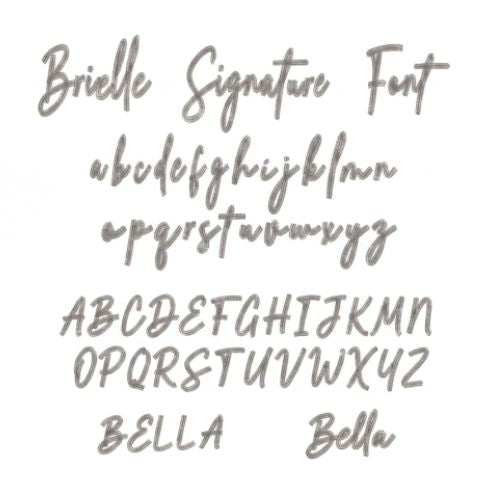 Brielle Signature Font
abcdefghijklmn
opqrstuvwxyz
ABCDEFGHIJKMN
OPQRSTUVWXYZ
BELLA Bella